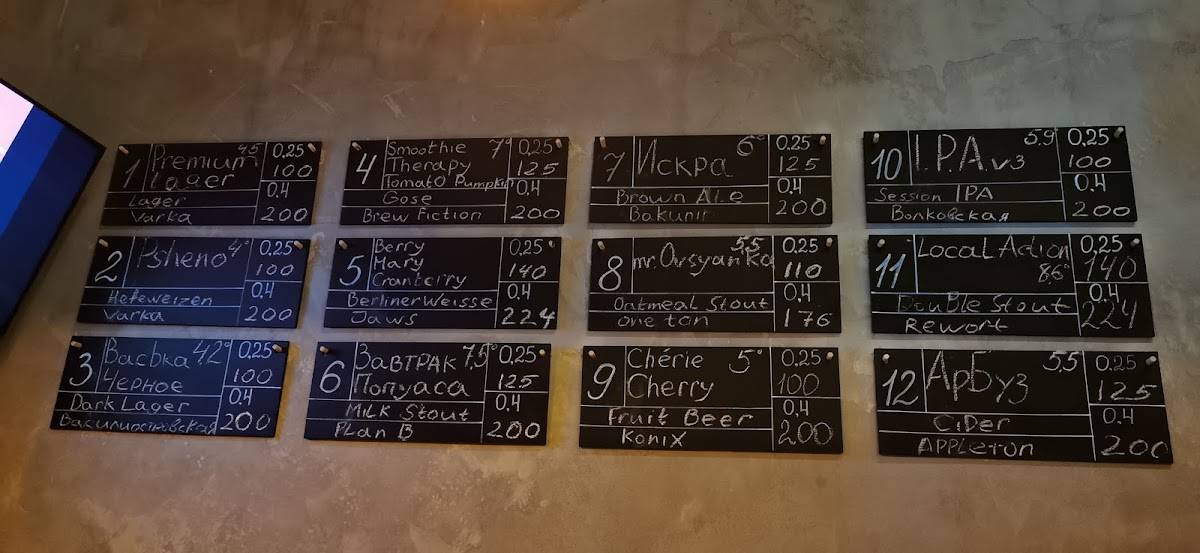 1
Premium 4.5
Lager
Lager
Varka
0,25
100
0.4
200
2
Psheno 4°
Hefeweizen
Varka
0.25
100
0.4
200
3
Васька 4.2°
Черное
Dark Lager
Василиостровская
0.25
100
0.4
200
4
Smoothie 7°
Therapy
Tomato Pumpkin
Gose
Brew Fiction
0,25
125
0.4
200
5
Berry
Mary
Cranberry
Berliner Weisse
Jaws
0.25
140
0.4
224
6
Завтрак 7,5°
Попуаса
Milk Stout
Plan B
0.25
125
0.4
200
7
Искра 6°
Brown Ale
Bakunin
0.25
125
0.4
200
8
5,5
mr. Ovsyanka
Oatmeal Stout
One ton
0.25
110
0.4
176
9
Chérie 5°
Cherry
Fruit Beer
Konix
0.25
100
0.4
200
10
I.P.A. v3 5.9°
Session IPA
Волковская
0,25
100
0.4
200
11
Local Action
8,6°
Double Stout
Rewort
0,25
140
0.4
224
12
Арбуз 5,5
CiDer
Appleton
0.25
125
0.4
200